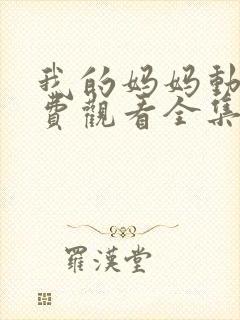 我的妈妈動
費觀看全集
羅漢堂